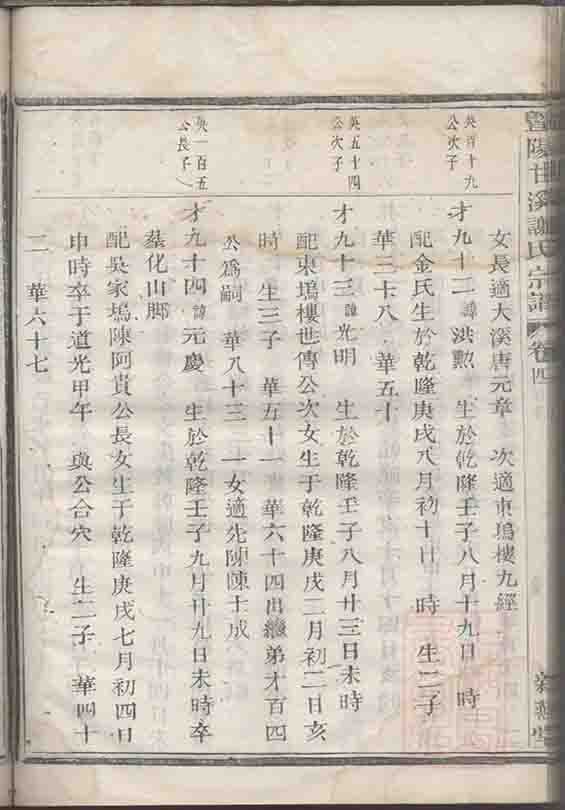 暨陽甘溪謝氏宗譜 卷四
女長適大溪唐元章 次適東塢樓九經
英百十九公次子
才九十二 諱洪勲 生於乾隆壬子八月十九日 時
配金氏生於乾隆庚戌八月初十日 時 生二子
華三十八 華五十
英五十四公次子
才九十三 諱光明 生於乾隆壬子八月廿三日未時
配東塢樓世傳公次女生于乾隆庚戌二月初二日亥
時 生三子 華五十一 華六十四出繼弟才百四
公為嗣 華八十三 一女適陳士成
英一百五公長子
才九十四 諱元慶 生於乾隆壬子九月廿九日未時卒
墓化山脚
配吳家塢陳阿貴公長女生于乾隆庚戌七月初四日
申時卒于道光甲午 與公合穴 生二子 華四十
二 華六十七